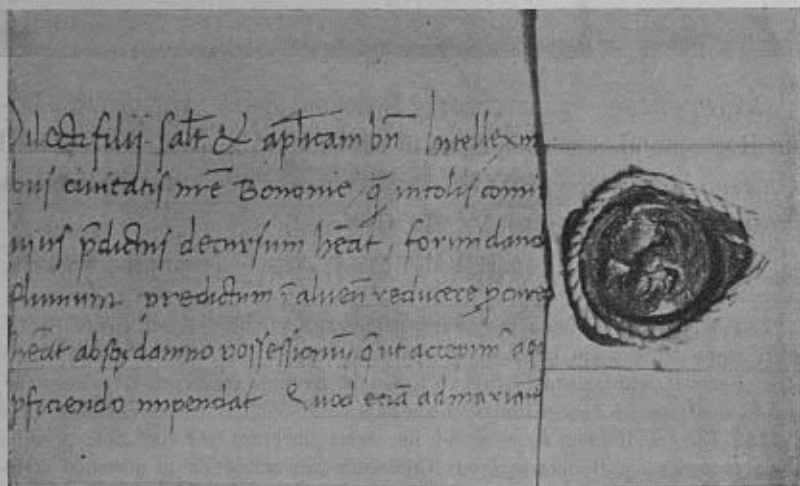 Dilecti filij salt̄ & aplicam bn̄ Intellexim
bus civitatis nr̄e Bononie, q̄ incolis comi
uius p̄dictus decursum hēat, formidand
flumum predictum ī alueū reducere
hēat absq; damno possessionū, q̄ ut
pficiendo impendat Quod etiā ad